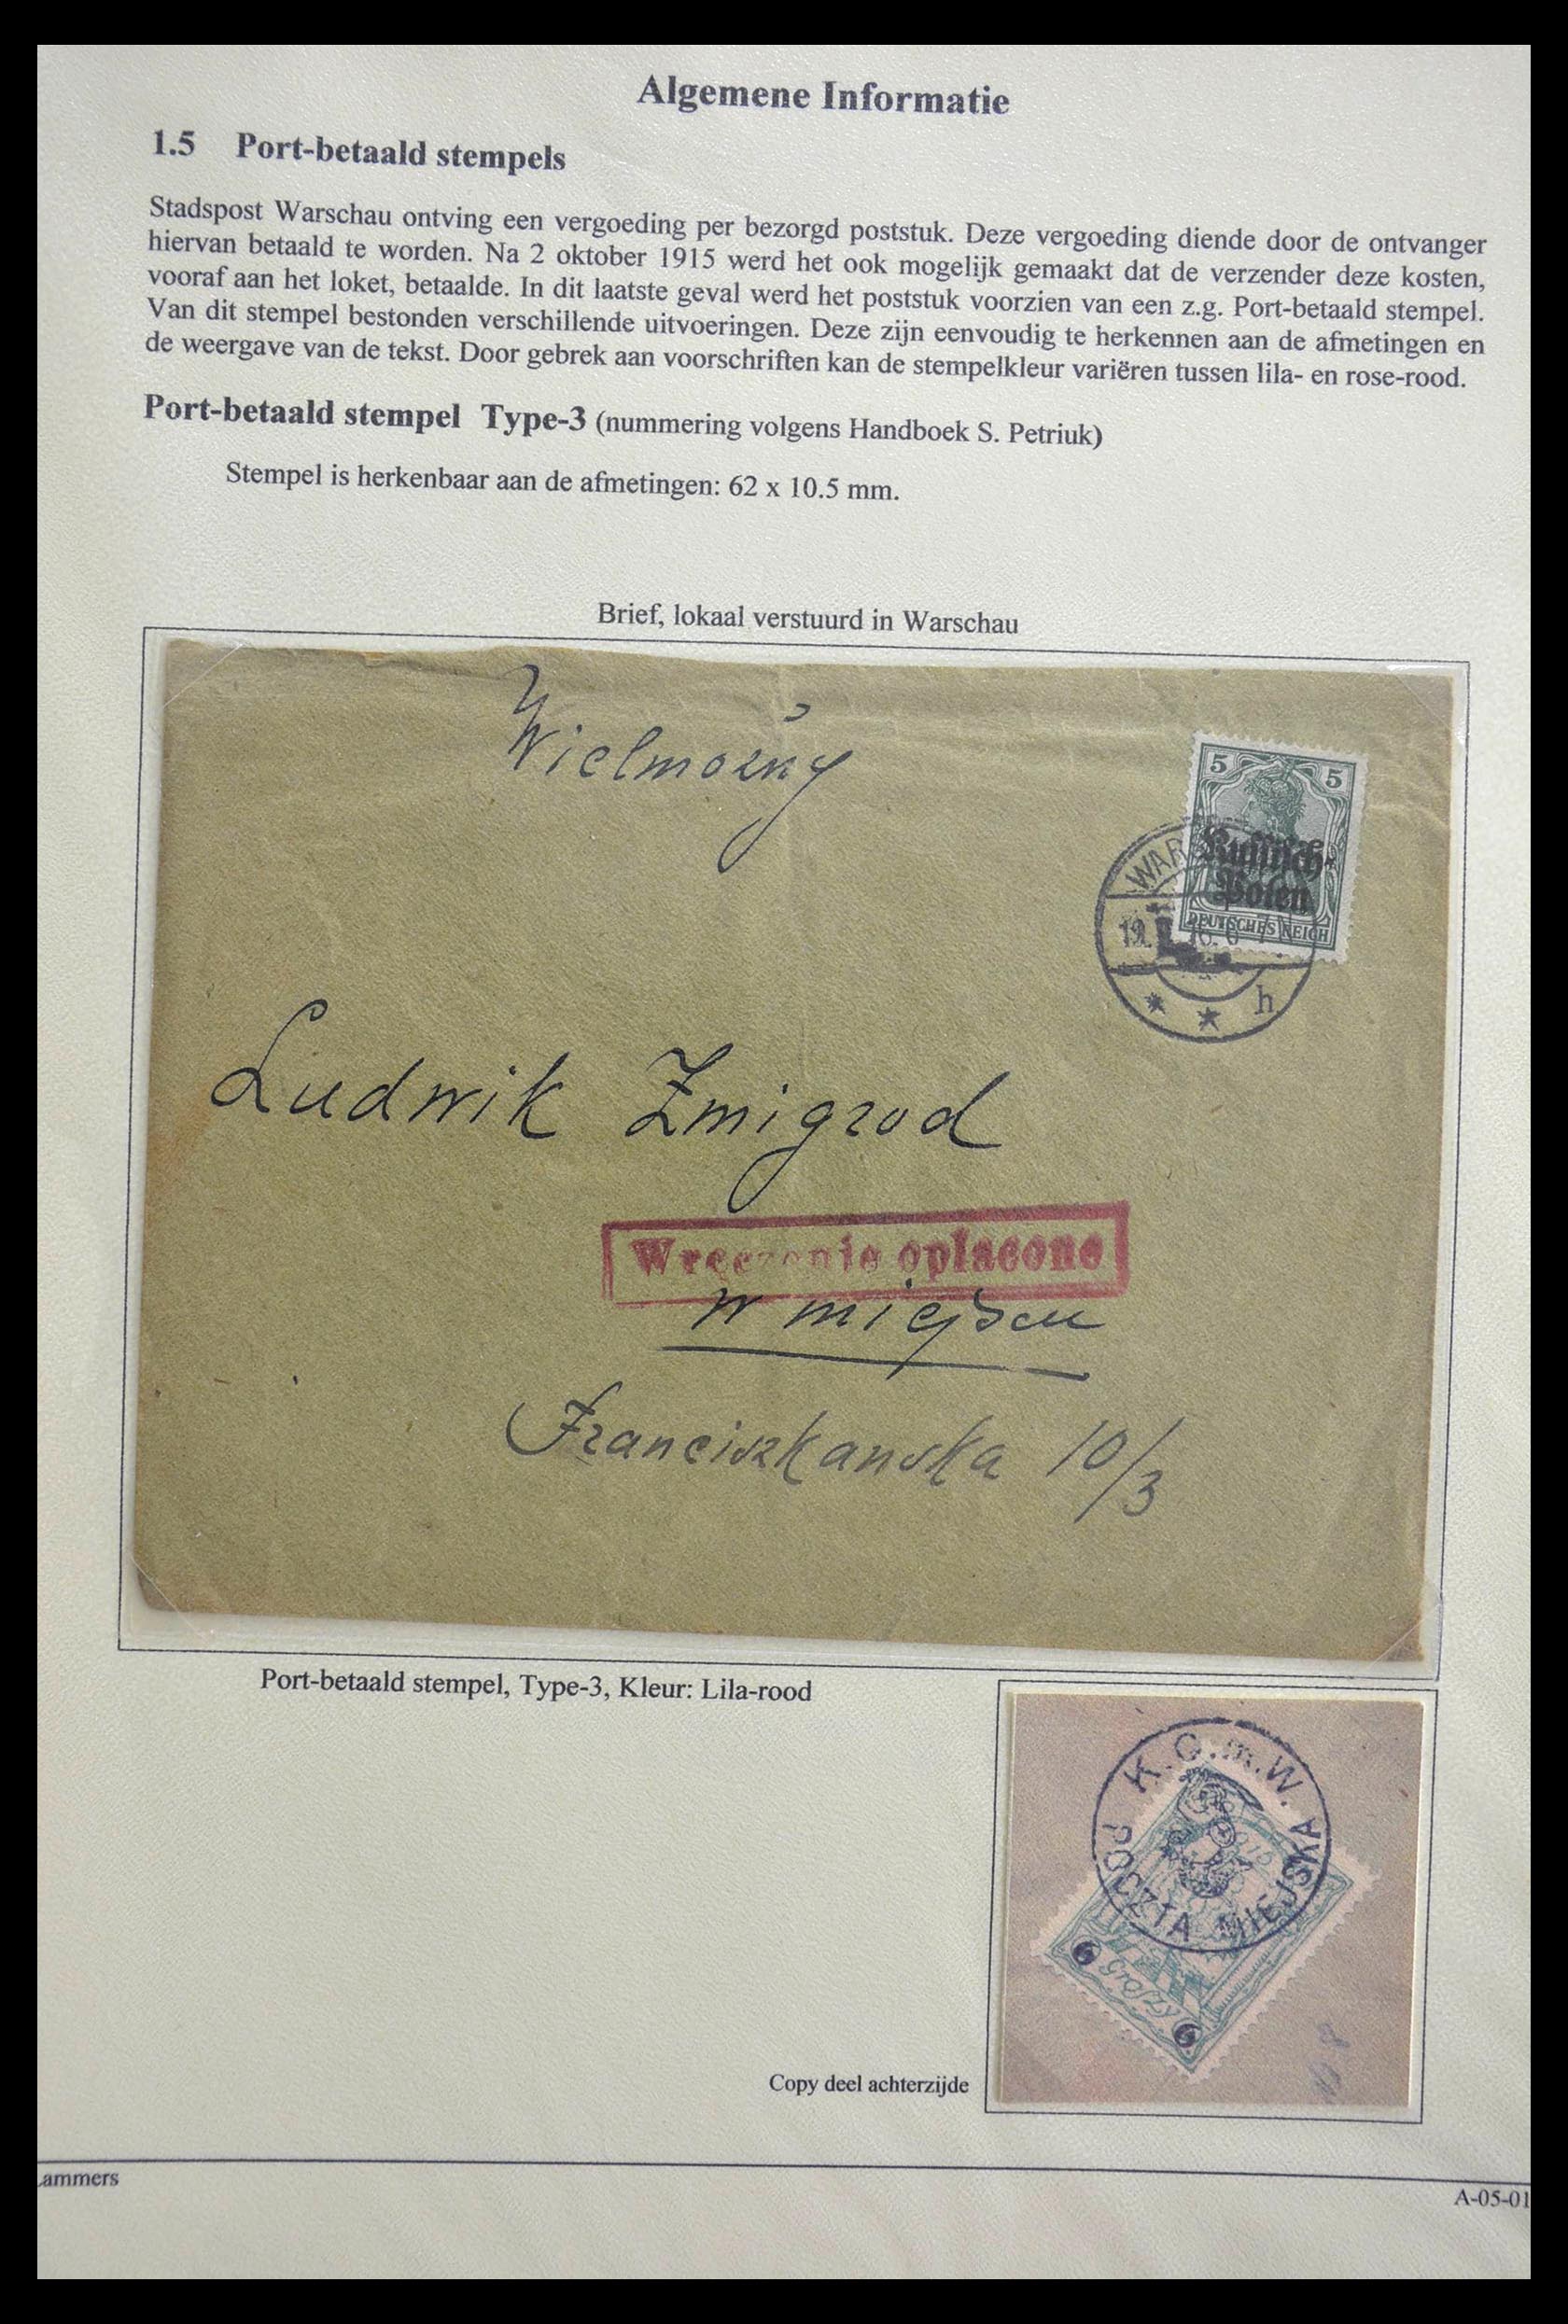 Algemene Informatie
1.5 Port-betaald stempels
Stadspost Warschau ontving een vergoeding per bezorgd poststuk. Deze vergoeding diende door de ontvanger
hiervan betaald te worden. Na 2 oktober 1915 werd het ook mogelijk gemaakt dat de verzender deze kosten,
vooraf aan het loket, betaalde. In dit laatste geval werd het poststuk voorzien van een z.g. Port-betaald stempel.
Van dit stempel bestonden verschillende uitvoeringen. Deze zijn eenvoudig te herkennen aan de afmetingen en
de weergave van de tekst. Door gebrek aan voorschriften kan de stempelkleur variëren tussen lila- en rose-rood.
Port-betaald stempel Type-3 (nummering volgens Handboek S. Petriuk)
Stempel is herkenbaar aan de afmetingen: 62 x 10.5 mm.
Brief, lokaal verstuurd in Warschau
Wielmożny
5 5
Russisch-
Polen
DEUTSCHES REICH
WAR
h
Ludwik Zmigrod
Wręczenie opłacone
w miejscu
Franciszkanska 10/3
Port-betaald stempel, Type-3, Kleur: Lila-rood
K.O.m.W.
POCZTA MIEJSKA
6 groszy 6
Copy deel achterzijde
ammers
A-05-01